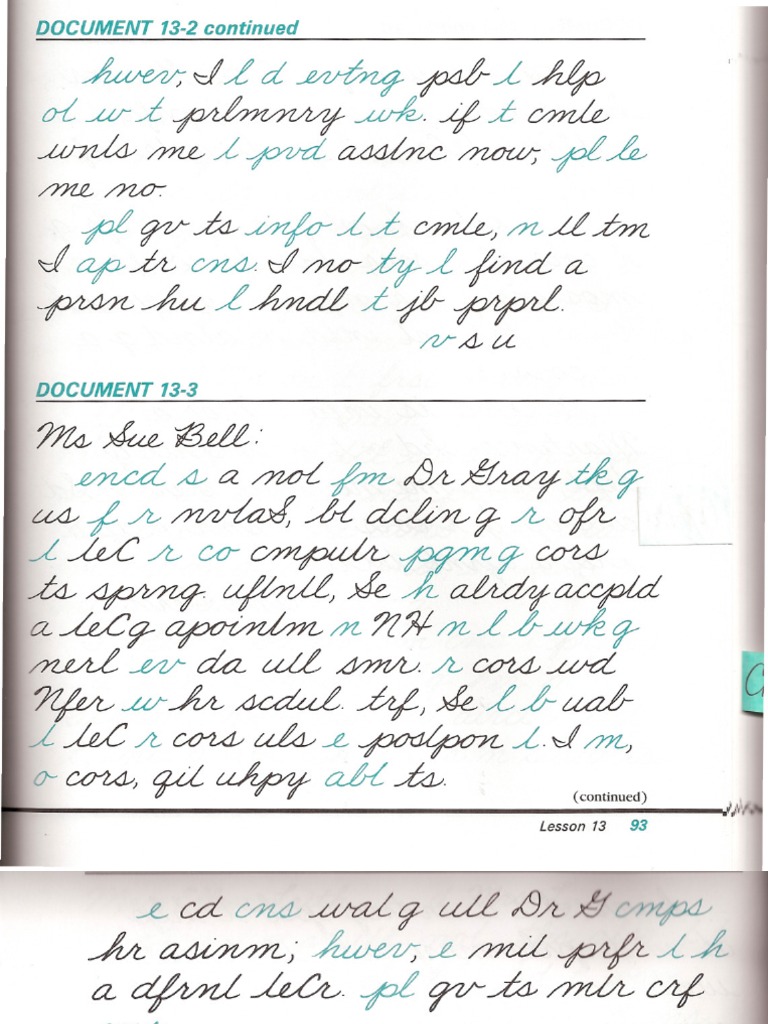 DOCUMENT 13-2 continued
hwev, I l d evtng psb l hlp
ol w t prlmnry wk. if t cmle
wnls me l pvd asslnc now, pl le
me no.
pl gv ts info l t cmle, n ll tm
I ap tr cns. I no ty l find a
prsn hu l hndl t jb prprl.
v s u
DOCUMENT 13-3
Ms Sue Bell:
encd s a nol fm Dr Gray tkg
us f r nvlaS, bl dclin g r ofr
l leC r co cmpulr pgmg cors
ts sprng. uflnll, Se h alrdy accpld
a leCg apoinlm n NH n l b wkg
nerl ev da ull smr. r cors wd
Nfer w hr scdul. trf, Se l b uab
l leC r cors uls e poslpon l. I m,
o cors, qil uhpy abl ts.
(continued)
Lesson 13 93
e cd cns walg ull Dr G cmps
hr asinm; hwev, e mil prfr l h
a dfrnl leCr. pl gv ts mlr crf